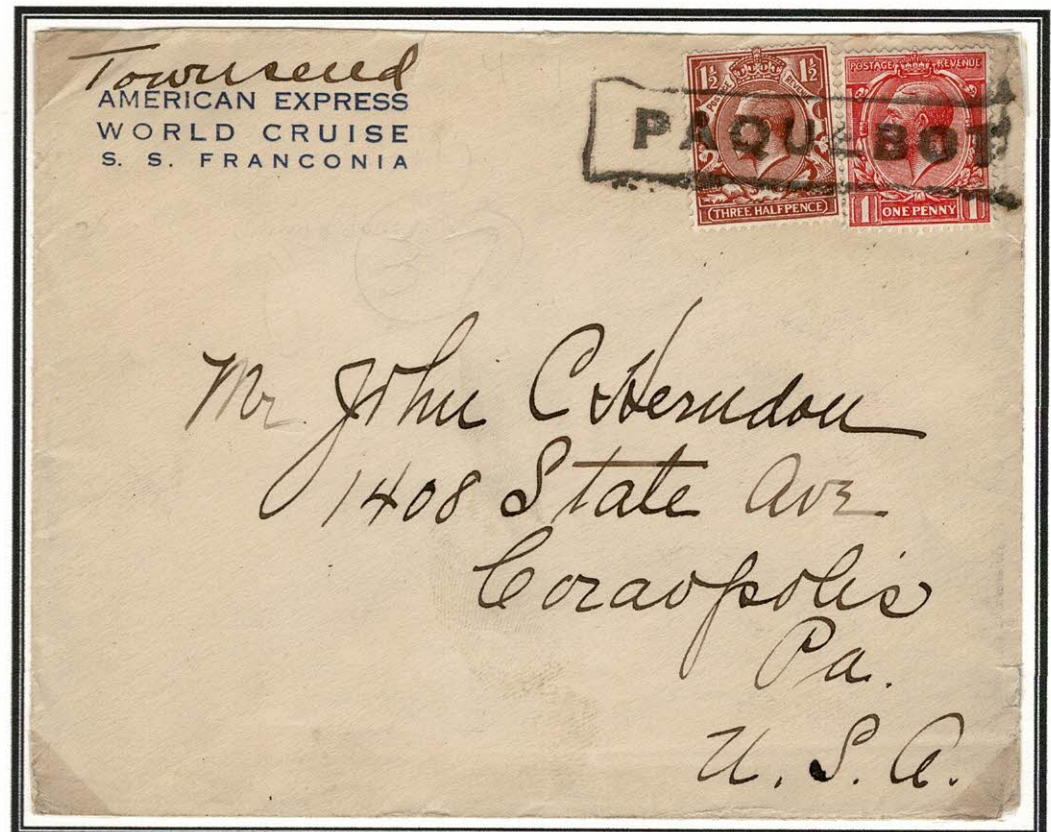 Townsend
AMERICAN EXPRESS
WORLD CRUISE
S. S. FRANCONIA
1½ 1½
POSTAGE REVENUE
THREE HALFPENCE
POSTAGE REVENUE
1 ONE PENNY 1
PAQUEBOT
Mr. John C Herndon
1408 State Ave
Coraopolis
Pa.
U. S. A.